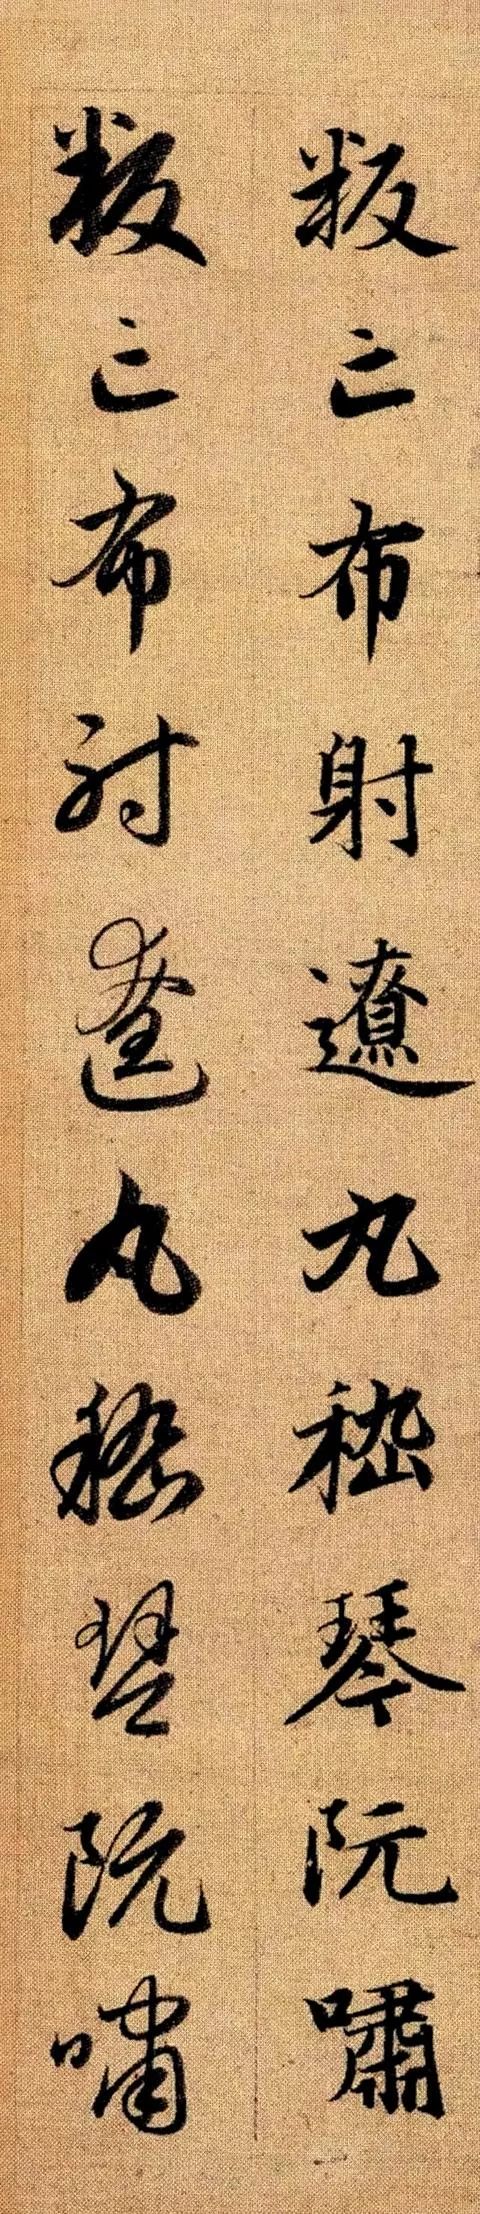 叛亡布射遼丸嵇琴阮嘯
叛亡布射遼丸嵇琴阮嘯